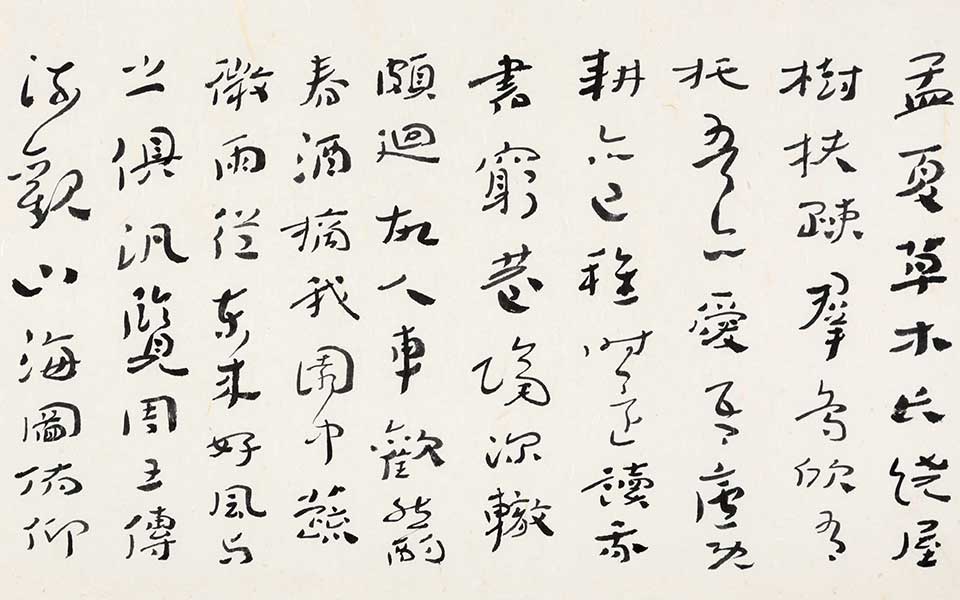 孟夏草木長繞屋
樹扶踈羣鳥欣有
托吾亦愛吾廬既
耕亦已種時還讀我
書窮巷隔深轍
頗迴故人車歡然酌
春酒摘我園中蔬
微雨從東來好風與
之俱汎覽周王傳
流觀山海圖俯仰